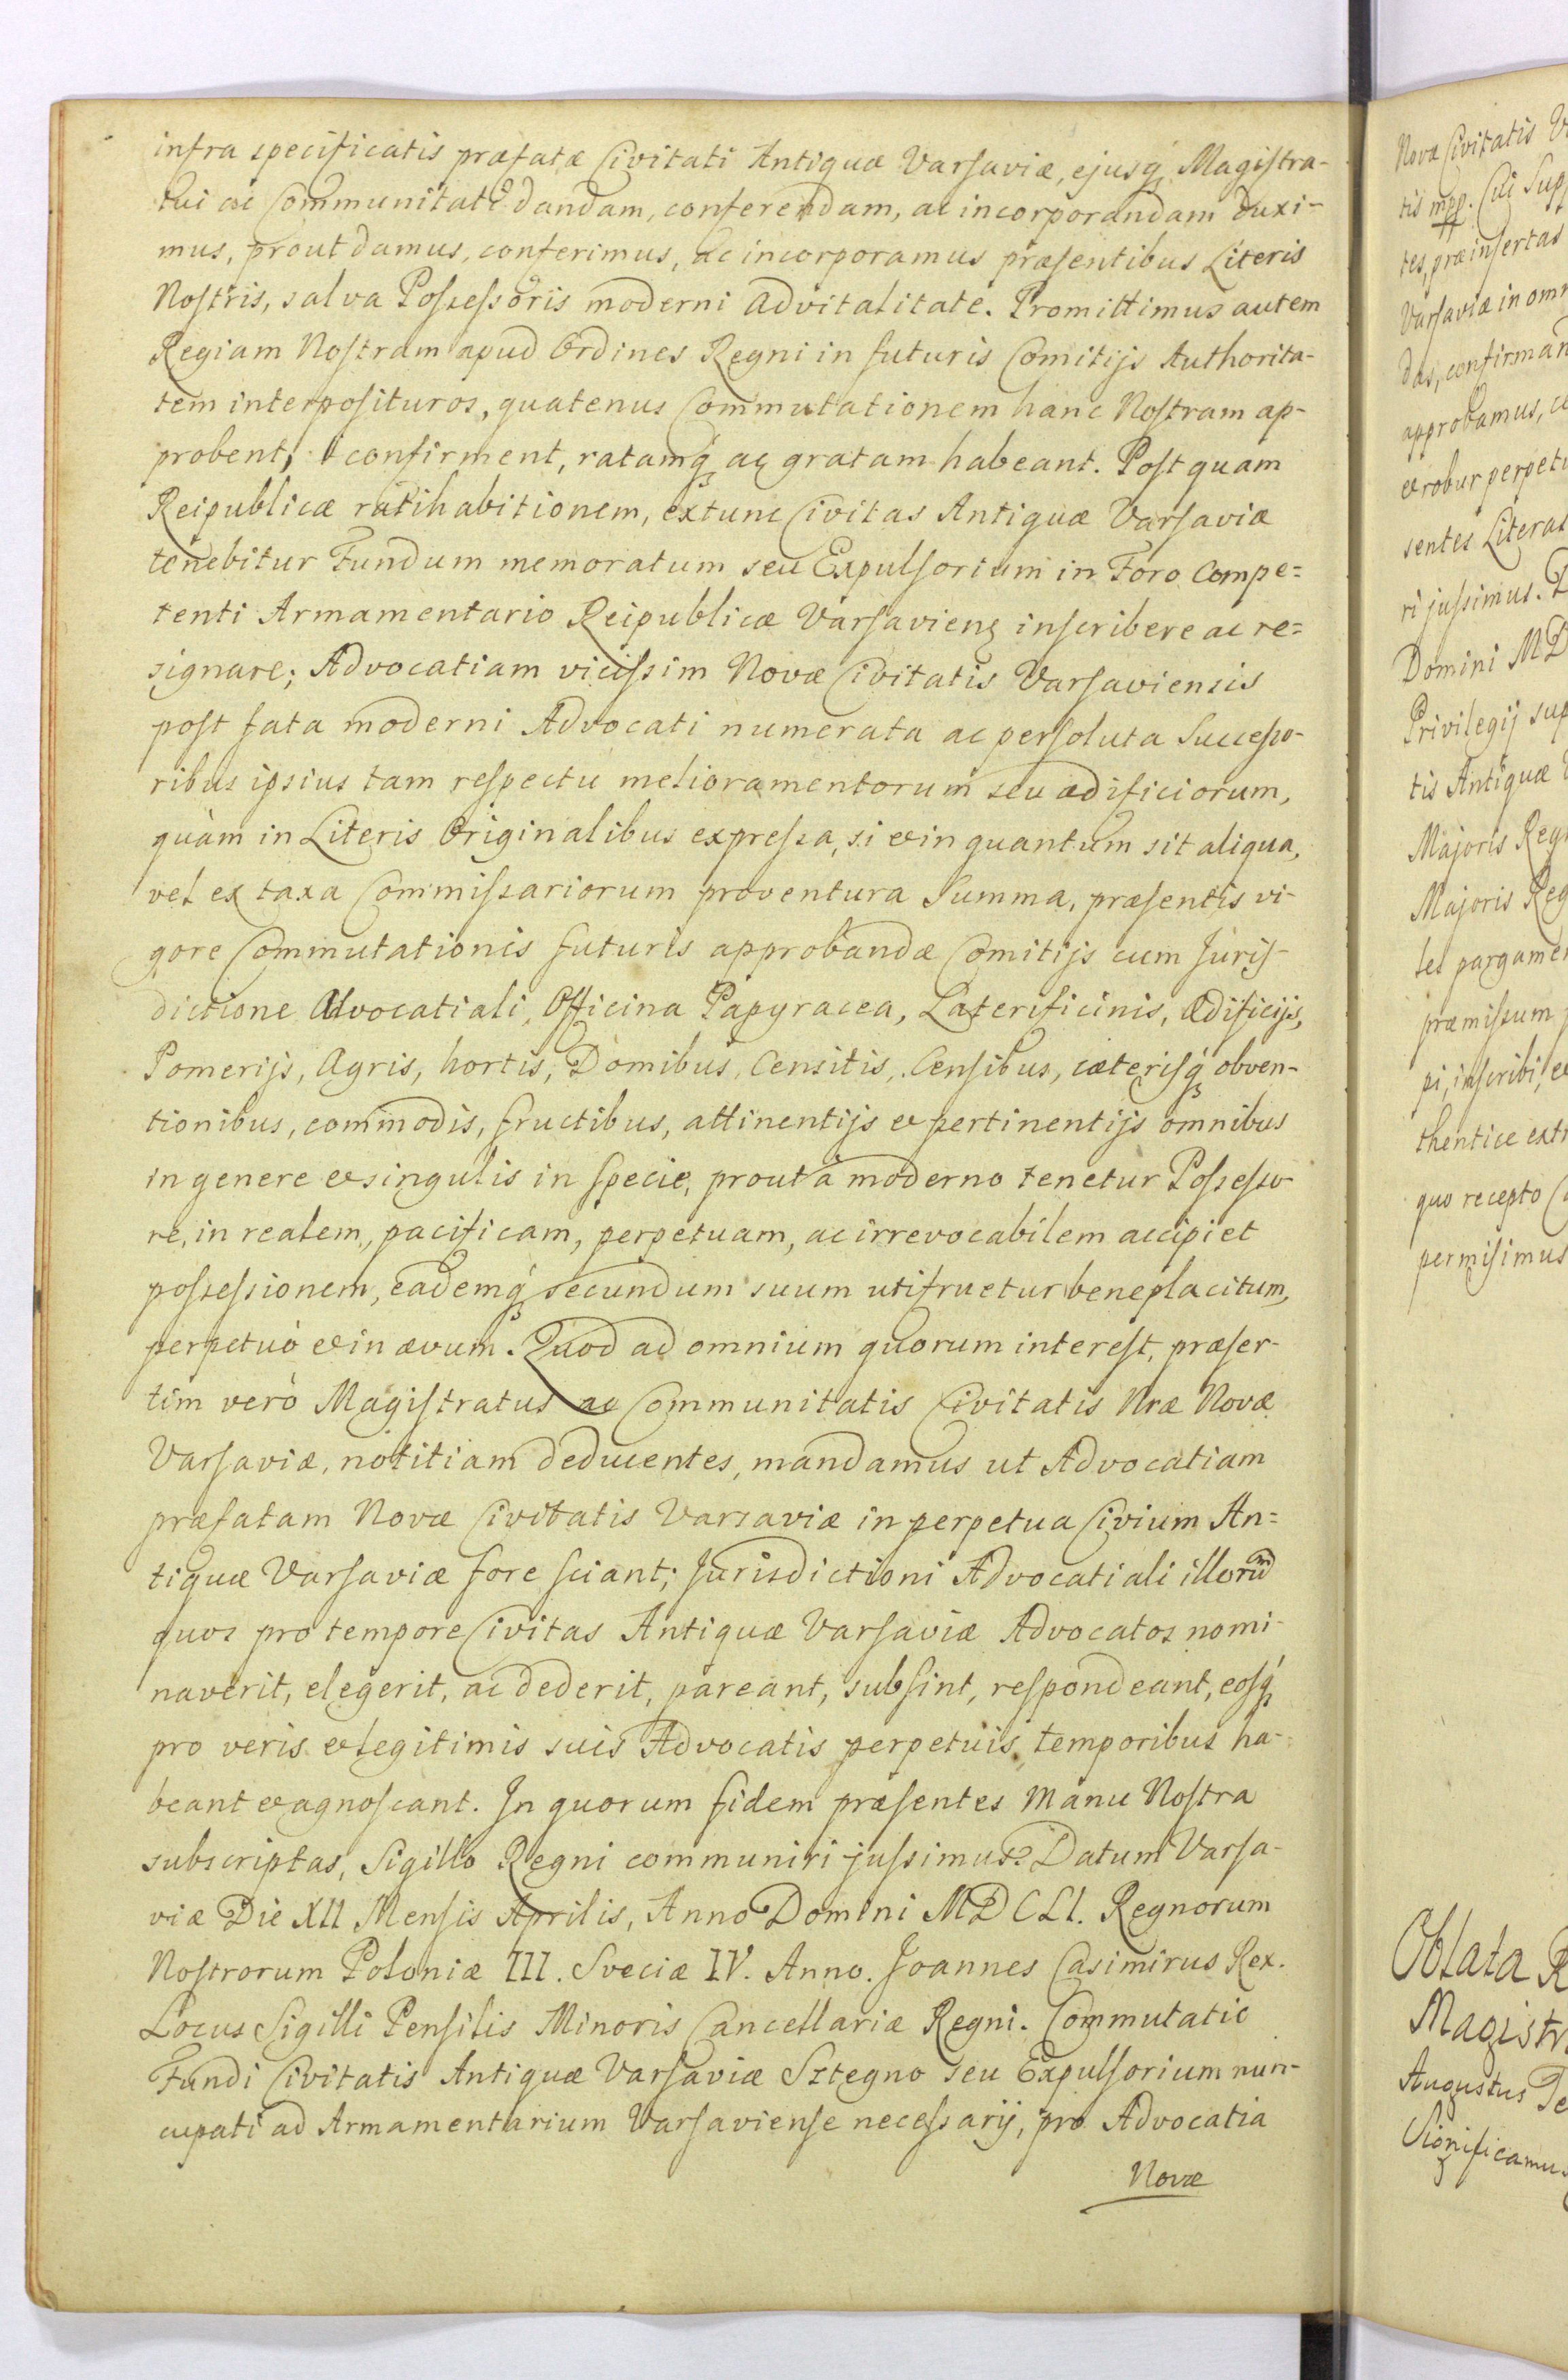 infra specificatis præfatæ Civitati Antiquæ Varsaviæ, ejusq́ Magistra-
tui ac Communitati dandam, conferendam, ac incorporandam duxi-
mus, prout damus, conferimus, ac incorporamus præsentibus Literis
Nostris, salva Possessoris moderni advitalitate. Promittimus autem
Regiam Nostram apud Ordines Regni in futuris Comitijs Authorita-
tem interposituros, quatenus Commutationem hanc Nostram ap-
probent, confirment, ratamq́ ac gratam habeant. Post quam
Reipublicæ ratihabitionem, extunc Civitas Antiquæ Varsaviæ
tenebitur Fundum memoratum seu Expulsorium in Foro Compe=
tenti Armamentario Reipublicæ Varsavienß inscribere ac re=
signare; Advocatiam vicissim Novæ Civitatis Varsaviensis
post fata moderni Advocati numerata ac persoluta Successo-
ribus ipsius tam respectu melioramentorum seu ædificiorum,
quàm in Literis Originalibus expressa, si et in quantum sit aliqua,
vel ex taxa Commissariorum proventura Summa, præsentis vi-
gore Commutationis futuris approbandæ Comitijs cum Juris-
dictione Advocatiali, Officina Papyracea, Laterificinis, Ædificijs,
Pomerijs, Agris, hortis, Domibus, Censitis, Censibus, cæterisq́ obven-
tionibus, commodis, fructibus, attinentijs et pertinentijs omnibus
in genere et singulis in specie, prout à moderno tenetur Possesso-
re, in realem, pacificam, perpetuam, ac irrevocabilem accipiet
possessionem, eademq́ secundum suum utifruetur beneplacitum,
perpetuò et in ævum. Quod ad omnium quorum interest, præser-
tim verò Magistratus ac Communitatis Civitatis Nræ Novæ
Varsaviæ, notitiam deducentes, mandamus ut Advocatiam
præfatam Novæ Civitatis Varsaviæ in perpetua Civium An=
tiquæ Varsaviæ fore sciant; Jurisdictioni Advocatiali illorū
quos pro tempore Civitas Antiquæ Varsaviæ Advocatos nomi-
naverit, elegerit, ac dederit, pareant, subsint, respondeant, eosq́
pro veris et legitimis suis Advocatis perpetuis temporibus ha-
beant et agnoscant. In quorum fidem præsentes Manu Nostra
subscriptas, Sigillo Regni communiri jussimus. Datum Varsa-
viæ Die XII Mensis Aprilis, Anno Domini MDCLI. Regnorum
Nostrorum Poloniæ III. Sveciæ IV. Anno. Joannes Casimirus Rex.
Locus Sigilli Pensilis Minoris Cancellariæ Regni. Commutatio
Fundi Civitatis Antiquæ Varsaviæ Sztegno seu Expulsorium nun-
cupati ad Armamentarium Varsaviense necessarij, pro Advocatia
Novæ
Novæ Civitatis
tis mpp. Cui Sup
tes, præinsertas
Varsaviæ in omn
das, confirman
approbamus,
et robur perpet
sentes Literas
ri jussimus.
Domini MD
Privilegij sup
tis Antiquæ
Majoris Reg
Majoris Reg
let pargamen
præmissum
pi, inscribi, et
thentice extr
quo recepto
permisimus
Oblata R
Magistr
Augustus
Significamus